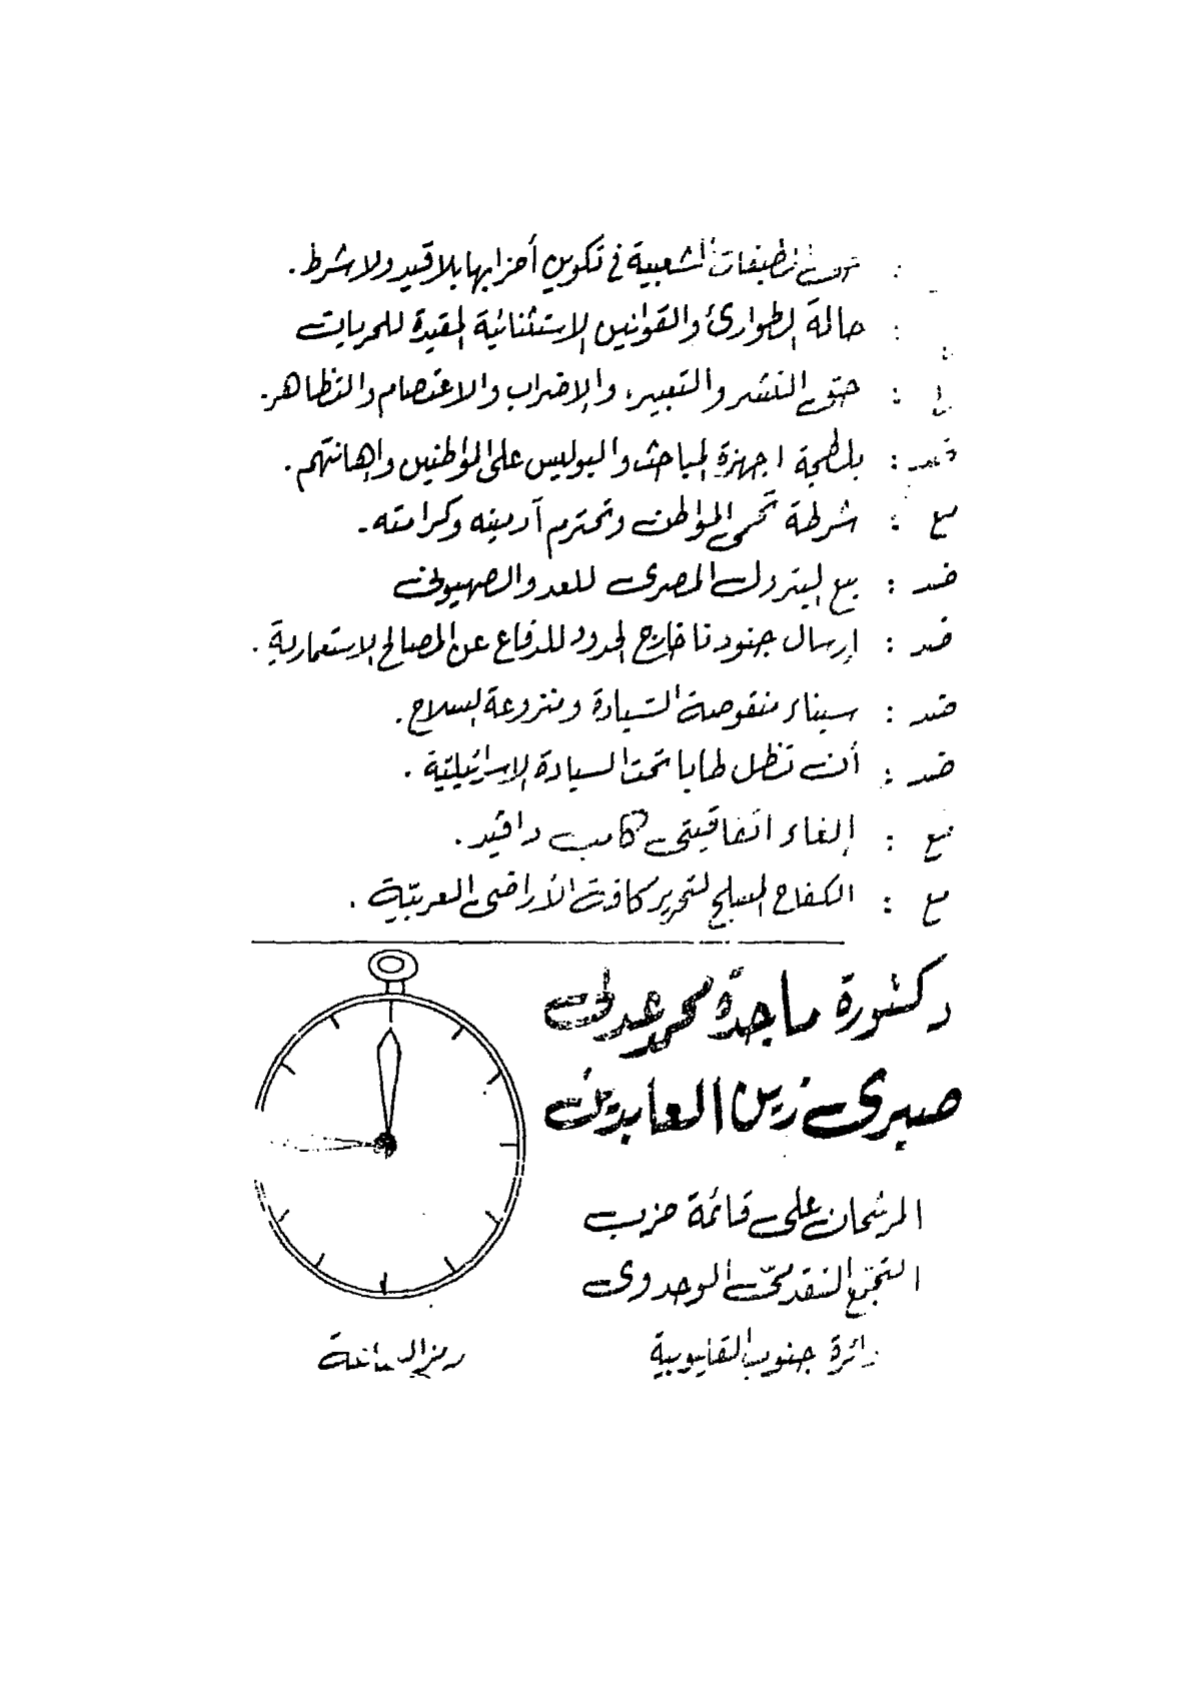 : حق الطبقات الشعبية في تكوين أحزابها بلا قيد ولا شرط .
: حالة الطوارئ والقوانين الاستثنائية المقيدة للحريات
: حق النشر والتعبير، والإضراب والاعتصام والتظاهر .
ضد : بلطجة اجهزة المباحث والبوليس على المواطنين وإهانتهم .
مع : شرطة تحمى المواطن وتحترم آدميته وكرامته .
ضد : بيع البترول المصرى للعدو الصهيونى
ضد : إرسال جنودنا خارج الحدود للدفاع عن المصالح الاستعمارية .
ضد : سيناء منقوصة السيادة ومنزوعة السلاح .
ضد : أن تظل طابا تحت السيادة الإسرائيلية .
مع : إلغاء اتفاقيتى كامب دافيد .
مع : الكفاح المسلح لتحرير كافة الأراضى العربيّة .
دكتورة ماجدة محمد عدلى
صبرى زين العابدين
المرشحان على قائمة حزب
التجمّع التقدمىّ الوحدوى
دائرة جنوب القليوبية
رمز الساعة